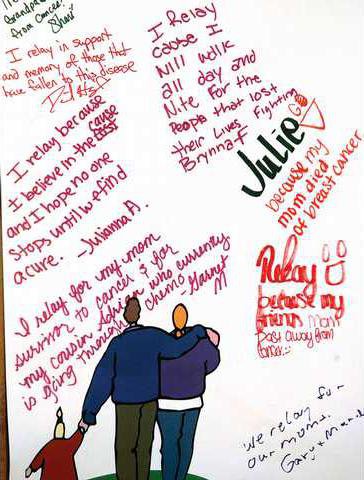 Grandpa
from Cancer!
Shari
I relay in support
and memory of those that
have fallen to this disease
I Relay
cause I
Will walk
all day and
Nite For the
People that lost
their Lives Fighting
Brynna F
Julie
because my
mom died
of breast cancer
I relay because
I believe in the cause
and I hope no one
stops until we find
a cure. -Julianna A.
I relay for my mom
survivor to cancer & for
my cousin Adrian who currently
is going through chemo - Garnet
M
Relay
because my
friends Mom
Past away from
Cancer
we relay for
our moms.
Gary +